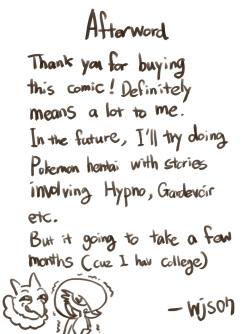 Afterword
Thank you for buying
this comic! Definitely
means a lot to me.
In the future, I'll try doing
Pokemon hentai with stories
involving Hypno, Gardevoir
etc.
But it going to take a few
months (cuz I hav college)
- wjson